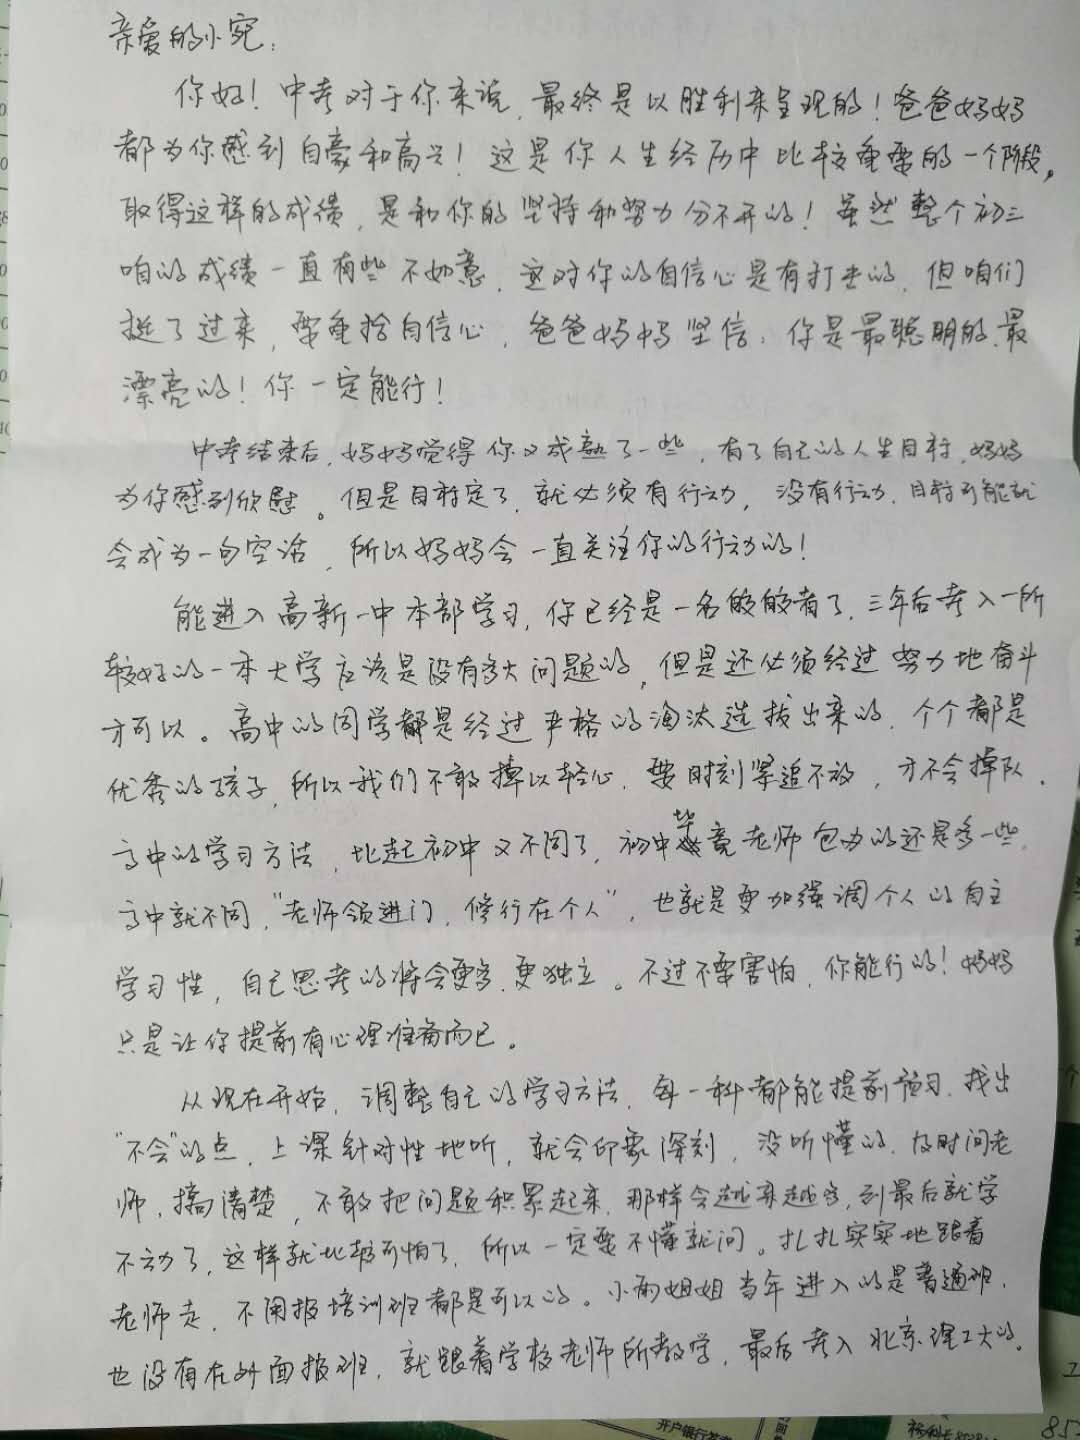 亲爱的小宛：
你好！中考对于你来说，最终是以胜利来呈现的！爸爸妈妈
都为你感到自豪和高兴！这是你人生经历中比较重要的一个阶段，
取得这样的成绩，是和你的坚持和努力分不开的！虽然整个初三
咱的成绩一直有些不如意，这对你的自信心是有打击的，但咱们
挺了过来，要重拾自信心，爸爸妈妈坚信：你是最聪明的、最
漂亮的！你一定能行！
中考结束后，妈妈觉得你又成熟了一些，有了自己的人生目标，妈妈
为你感到欣慰。但是目标定了，就必须有行动，没有行动，目标可能就
会成为一句空话，所以妈妈会一直关注你的行动的！
能进入高新一中本部学习，你已经是一名的皎者了，三年后考入一所
较好的一本大学应该是没有多大问题的，但是还必须经过努力地奋斗
才可以。高中的同学都是经过严格的淘汰选拔出来的，个个都是
优秀的孩子，所以我们不敢掉以轻心，要时刻紧追不放，才不会掉队。
高中的学习方法，比起初中又不同了，初中毕竟老师包办的还是多一些，
高中就不同，“老师领进门，修行在个人”，也就是更加强调个人的自主
学习性，自己思考的将会更多、更独立。不过不要害怕，你能行的！妈妈
只是让你提前有心理准备而已。
从现在开始，调整自己的学习方法，每一科都能提前预习，找出
“不会”的点，上课针对性地听，就会印象深刻，没听懂的，及时问老
师，搞清楚，不敢把问题积累起来，那样会越来越多，到最后就学
不动了，这样就比较可怕了，所以一定要不懂就问。扎扎实实地跟着
老师走，不用报培训班都是可以的。小雨姐姐当年进入的是普通班，
也没有在外面报班，就跟着学校老师所教学，最后考入北京理工大的。
开户银行